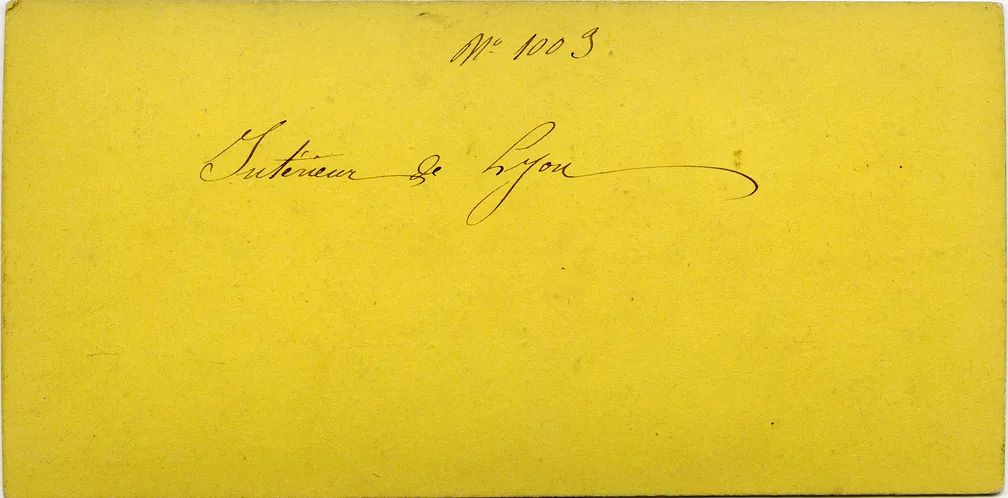 Nº 1003
Intérieur de Lyon